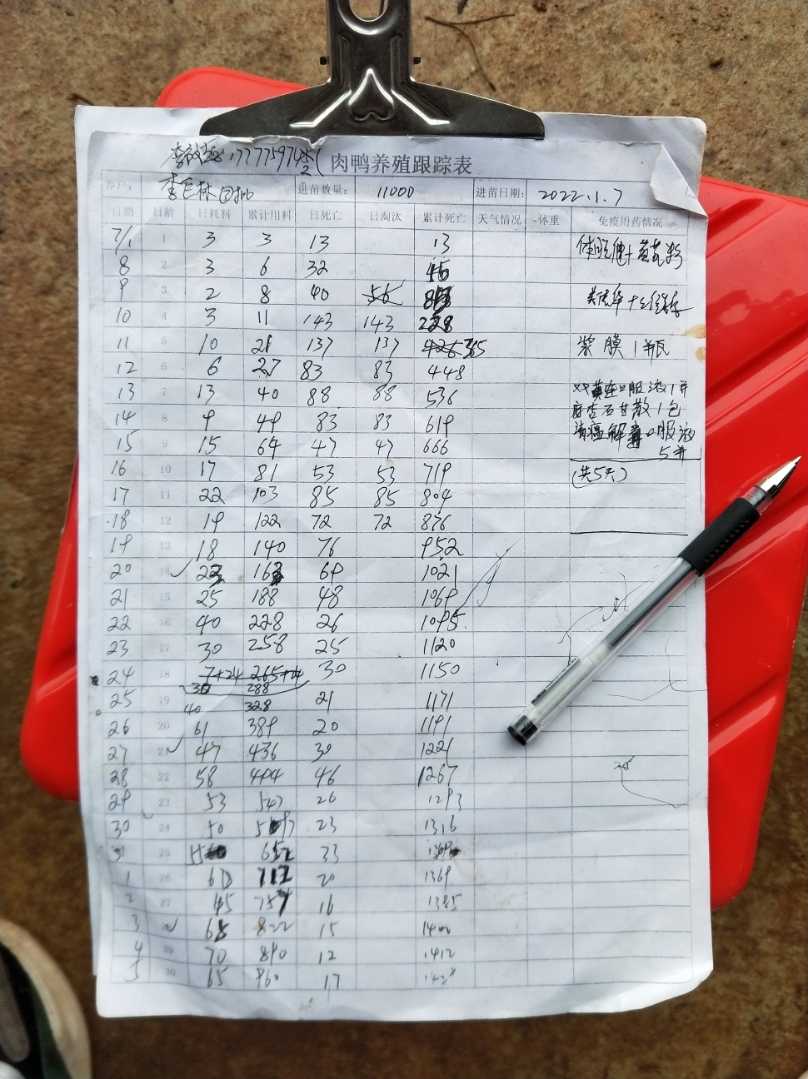 17777597
肉鸭养殖跟踪表
进苗数量： 11000 进苗日期： 2022.1.7
日期 日龄 日耗料 累计用料 日死亡 日淘汰 累计死亡 天气情况 体重 免疫用药情况
7/1 1 3 3 13 13
8 2 3 6 32 45
9 3 2 8 40 56
10 4 3 11 143 143 228
11 5 10 21 137 137 426 365 浆膜1瓶
12 6 6 27 83 83 448
13 7 13 40 88 88 536 双黄连口服液1件
14 8 9 49 83 83 619 麻杏石甘散1包
15 9 15 64 47 47 666 清瘟解毒口服液
5件
16 10 17 81 53 53 719 (共5天)
17 11 22 103 85 85 804
18 12 19 122 72 72 876
19 13 18 140 76 952
20 14 69 1021
21 15 25 188 48 1069
22 16 40 228 26 1095
23 17 30 258 25 1120
24 18 7+24 265+24 30 1150
30 288
25 19 40 328 21 1171
26 20 61 389 20 1191
27 21 47 436 30 1221
28 22 58 494 46 1267
29 23 53 547 26 1293
30 24 50 597 23 1316
31 25 652 33
1 26 60 712 20 1369
2 27 45 757 16 1385
3 28 65 822 15 1400
4 29 70 890 12 1412
5 30 65 960 17